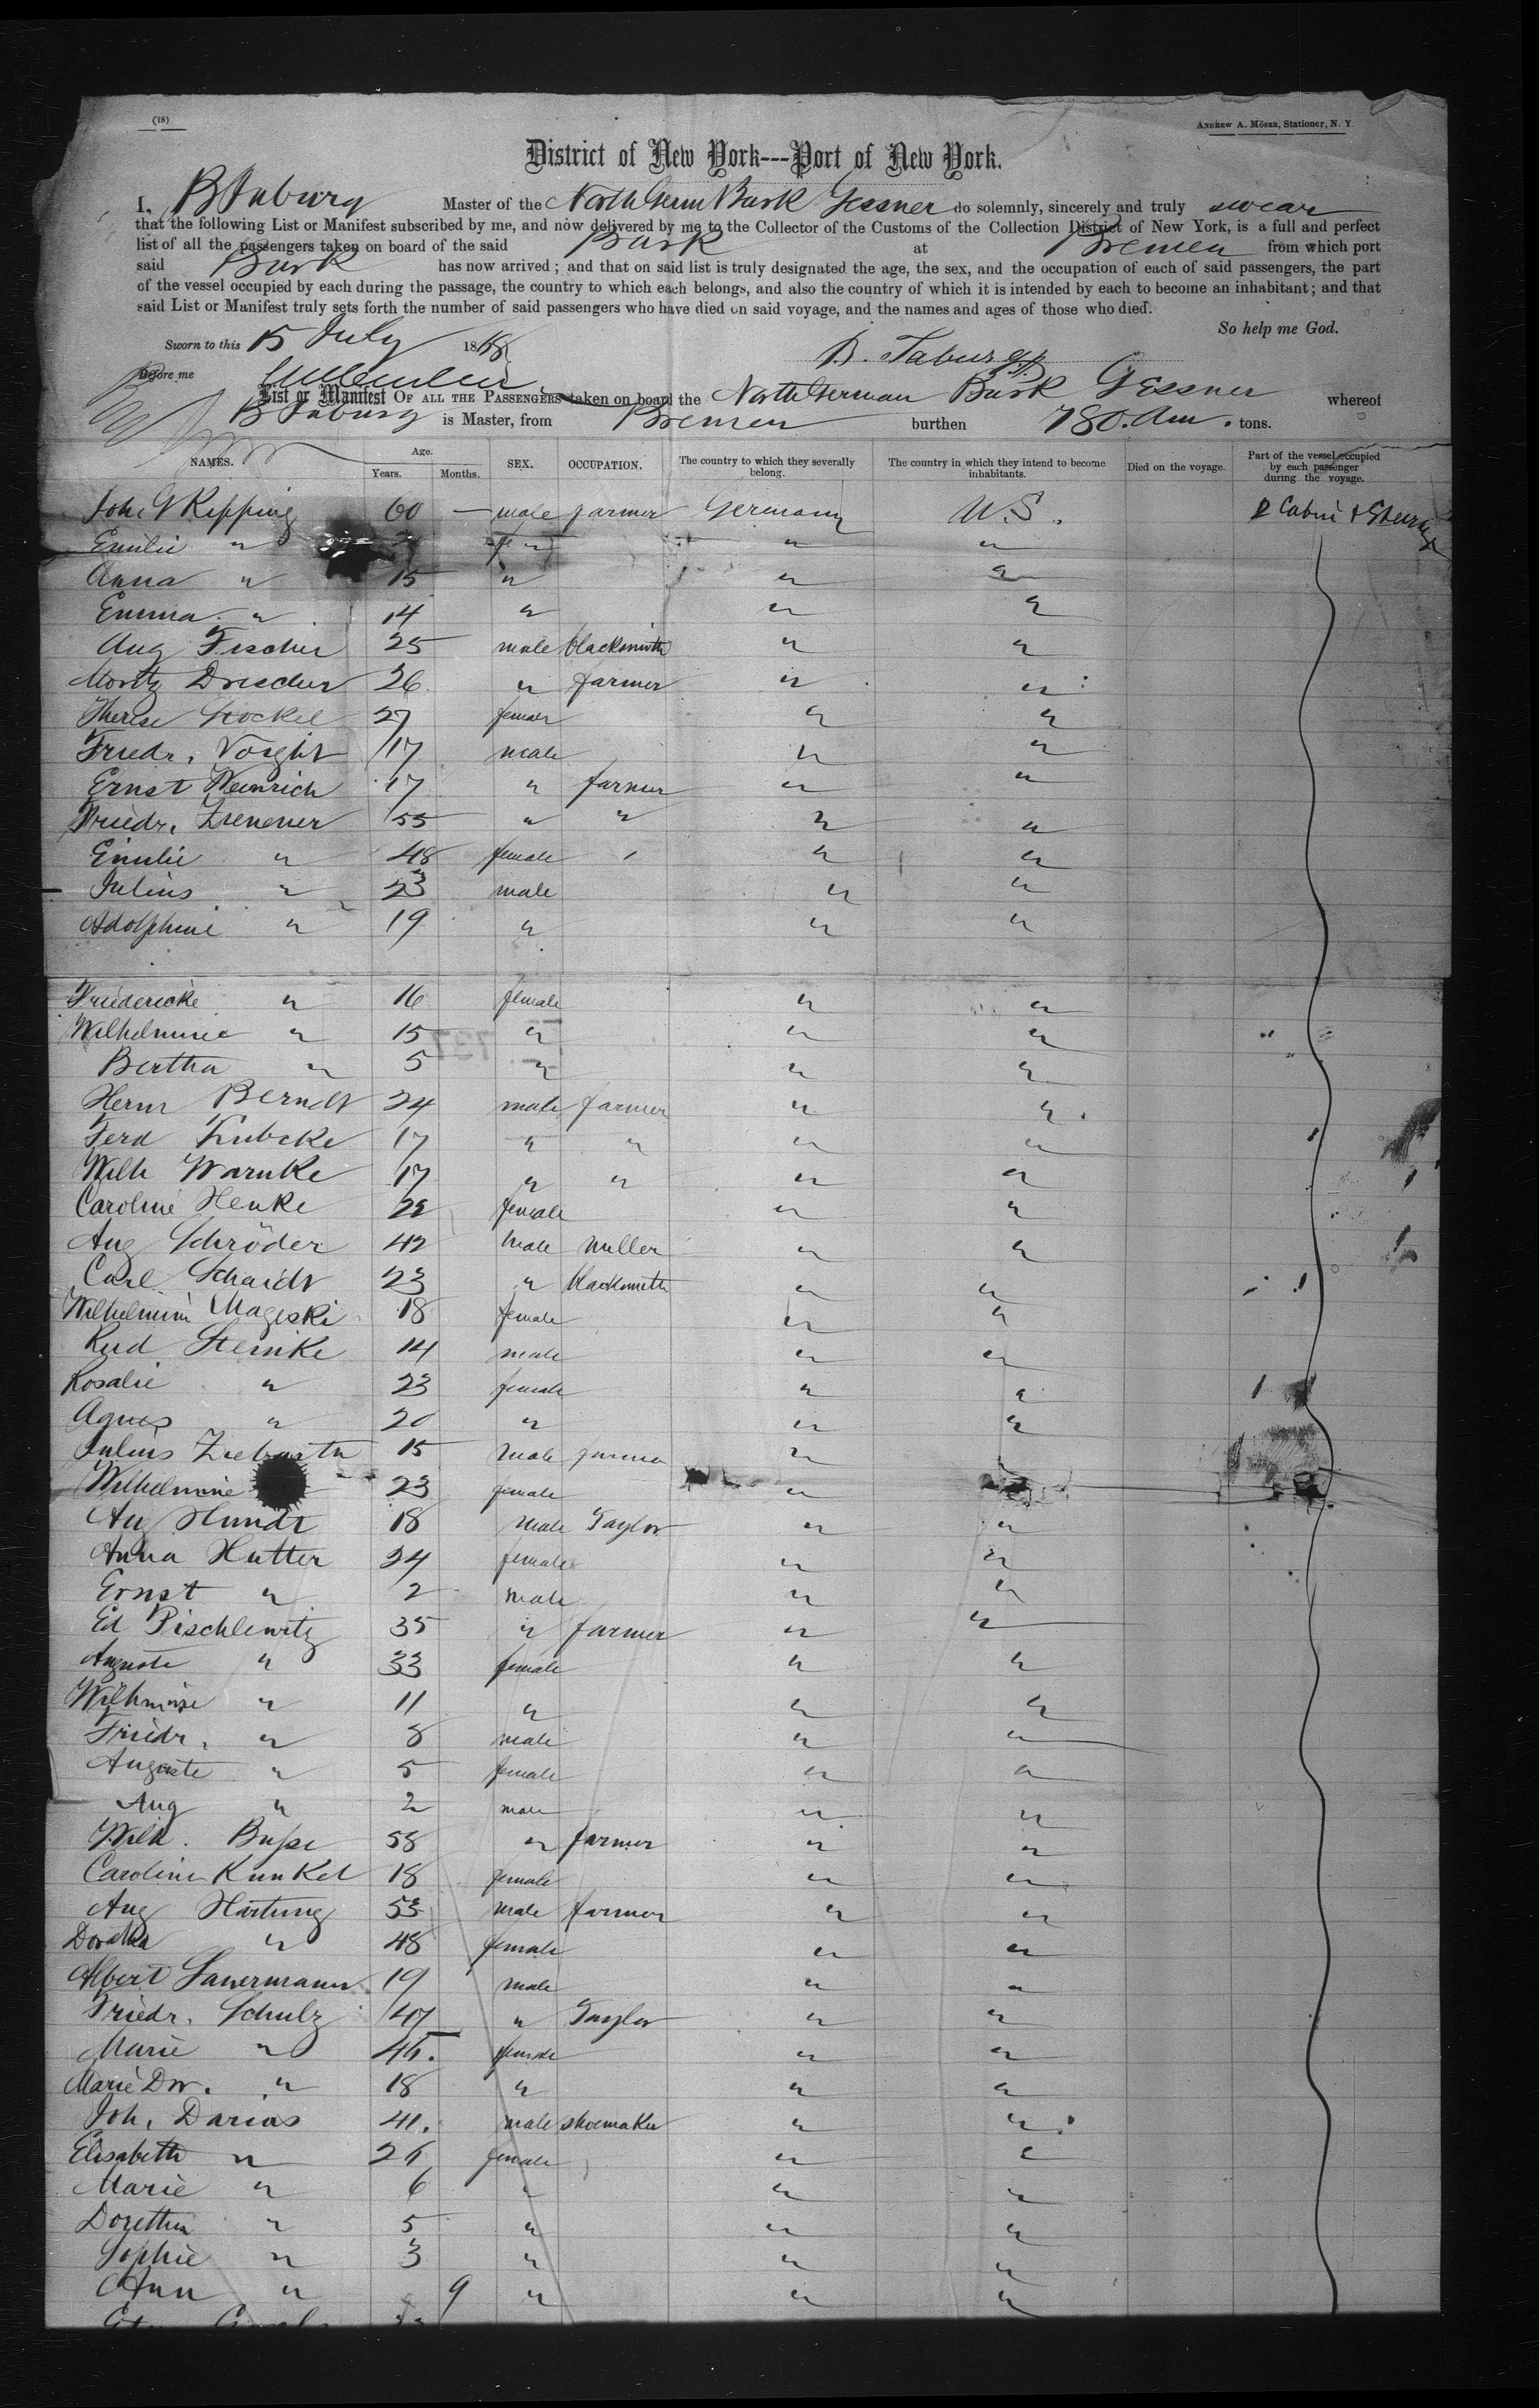 (18)
ANDREW A. MÖSER, Stationer, N. Y.
District of New York---Port of New York.
I, B Taburg Master of the North Germ Bark Gessner do solemnly, sincerely and truly swear
that the following List or Manifest subscribed by me, and now delivered by me to the Collector of the Customs of the Collection District of New York, is a full and perfect
list of all the passengers taken on board of the said Bark at Bremen from which port
said Bark has now arrived; and that on said list is truly designated the age, the sex, and the occupation of each of said passengers, the part
of the vessel occupied by each during the passage, the country to which each belongs, and also the country of which it is intended by each to become an inhabitant; and that
said List or Manifest truly sets forth the number of said passengers who have died on said voyage, and the names and ages of those who died.
So help me God.
Sworn to this 15 July 1868
B. Taburg
Before me
List or Manifest OF ALL THE PASSENGERS taken on board the North German Bark Gessner whereof
B Taburg is Master, from Bremen burthen 780. Am. tons.
NAMES. Age. Years. Months. SEX. OCCUPATION. The country to which they severally belong. The country in which they intend to become inhabitants. Died on the voyage. Part of the vessel occupied by each passenger during the voyage.
Joh. G Kipping 60 — male farmer Germany U.S. Cabin & Steerage
Emilie " " "
Anna " 15 " " "
Emma " 14 " " "
Aug Fischer 25 male blacksmith " "
Moritz Drescher 26 " farmer " "
Therese Stockel 27 female " "
Friedr. Voight 17 male " "
Ernst Weinrich 17 " farmer " "
Friedr. 55 " " " "
Emilie " 48 female " "
Julius " 23 male " "
Adolphine " 19 " " "
Friedericke " 16 female " "
Wilhelmine " 15 " " "
Bertha " 5 " " "
Herm Berndt 24 male farmer " "
Ferd Kubcke 17 " " " "
Wilh Warnke 17 " " " "
Caroline Henke 22 female " "
Aug Schröder 42 male miller " "
Carl Schaidt 23 " blacksmith " "
Wilhelmin Mageski 18 female " "
Rud Steinke 14 male " "
Rosalie " 23 female " "
Agnes " 20 " " "
Julius Ziebarth 15 male farmer "
Wilhelmine 23 female "
Au Hundt 18 male Taylor " "
Anna Hutter 24 female " "
Ernst " 2 male " "
Ed Pischlewitz 35 " farmer " "
Auguste " 33 female " "
Wilhmine " 11 " " "
Friedr. " 8 male " "
Auguste " 5 female " "
Aug " 2 male " "
Wilh. Buſse 58 " farmer " "
Caroline Kunkel 18 female " "
Aug Hartung 53 male farmer " "
Dorothea " 48 female " "
Albert Sauermann 19 male " "
Friedr. Schulz 47 " Taylor " "
Marie " 45. female " "
Marie Dor. " 18 " " "
Joh. Darias 41. male shoemaker " "
Elisabeth " 26 female " "
Marie " 6 " " "
Dorethea " 5 " " "
Sophie " 3 " " "
Ann " 9 " " "